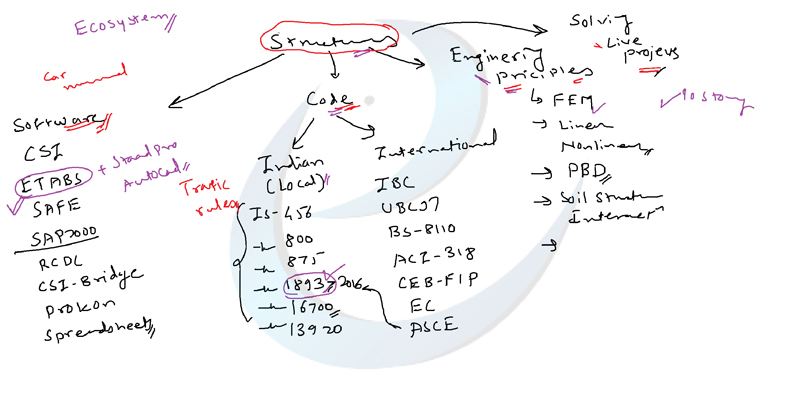 Ecosystem
Structures
Solving
Live
Projects
Enginering
Priciples
10 story
Car
manual
Code
FEM
Linear
Nonlinear
PBD
Soil Structure
Software
CSI
ETABS + Staad Pro
AutoCad
SAFE
SAP2000
RCDC
CSI-Bridge
Prokon
Spreadsheets
Trafic
rules
Indian
(Local)
IS-456
800
875
1893 2016
16700
13920
International
IBC
UBC97
BS-8110
ACI-318
CEB-FIP
EC
ASCE